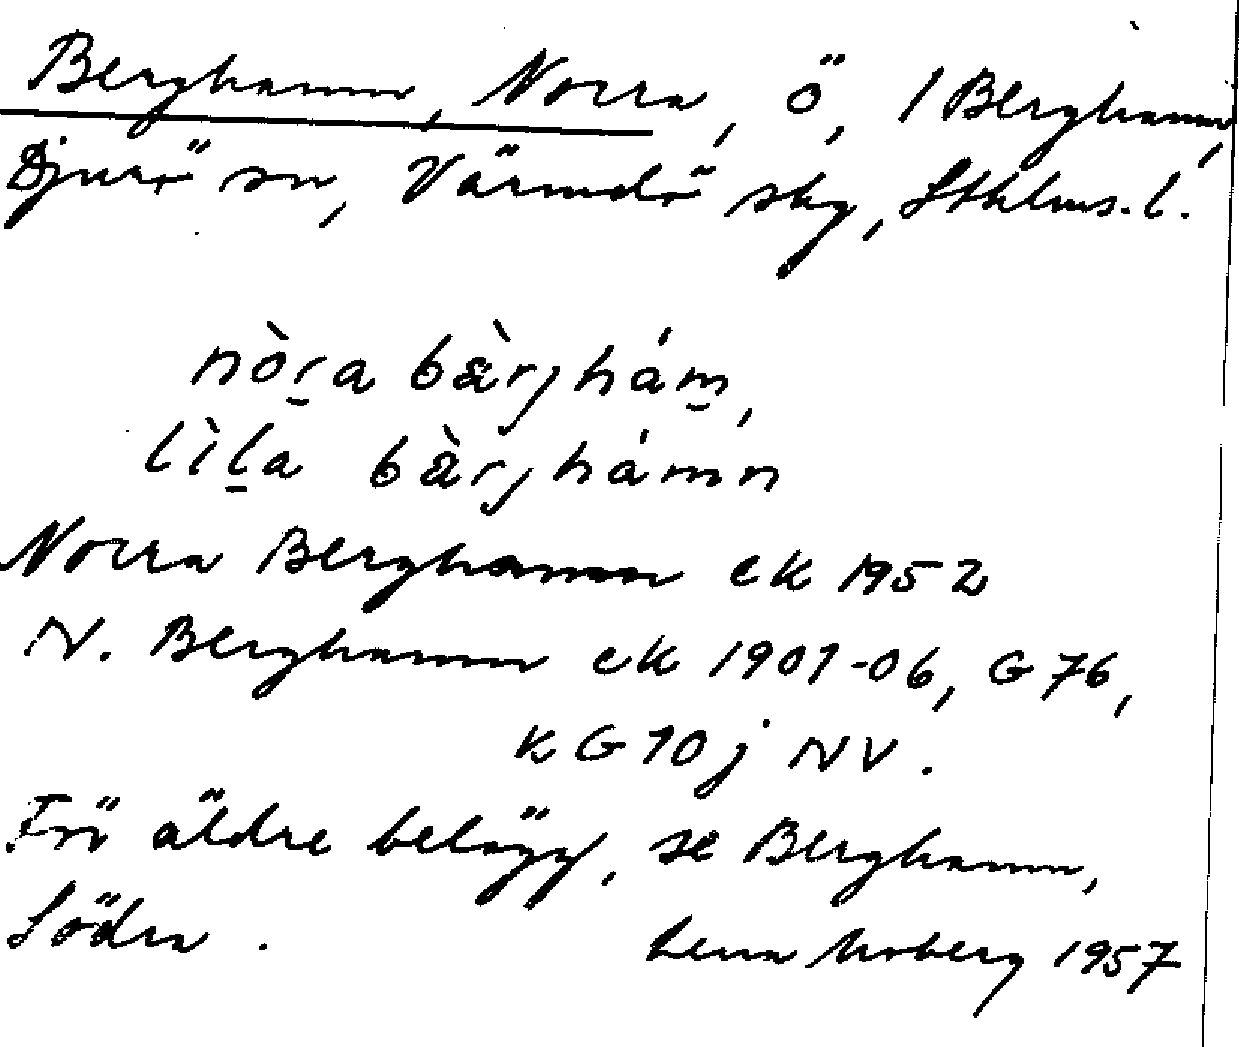 Berghamn, Norra, ö, / Berghamn,
Djurö sn, Värmdö sky, Sthlms. l.
nòr̲a bærjhám̲,
lìl̲a bærjhámn
Norra Berghamn ek 1952
N. Berghamn ek 1901-06, G 76,
k G 10 j NV.
För äldre belägg, se Berghamn,
Södra.
Lena Moberg 1957